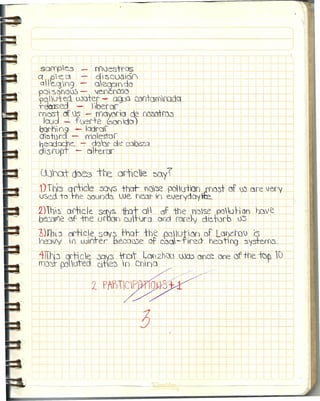 samples — muestras
a plea — discusión
alleging — alegando
poisonous — venenoso
polluted water — agua contaminada
released — liberar
most of us — mayoria de nosotros
loud — fuerte (sonido)
barking — ladrar
disturb — molestar
headache — dolor de cabeza
disrupt — alterar
What does the article say?
1) This article says that noise pollution, most of us are very
used to the sounds we hear in everyday life.
2) This article says that all of the noise pollution have
became of the urban cultura and rarely disturb us
3) This article says that the pollution of Lanzhou is
heavy in winter because of coal-fired heating systems.
4) This article says that Lanzhou was once one of the top 10
most polluted cities in China
2 PARTICIPATIONS + 1
3